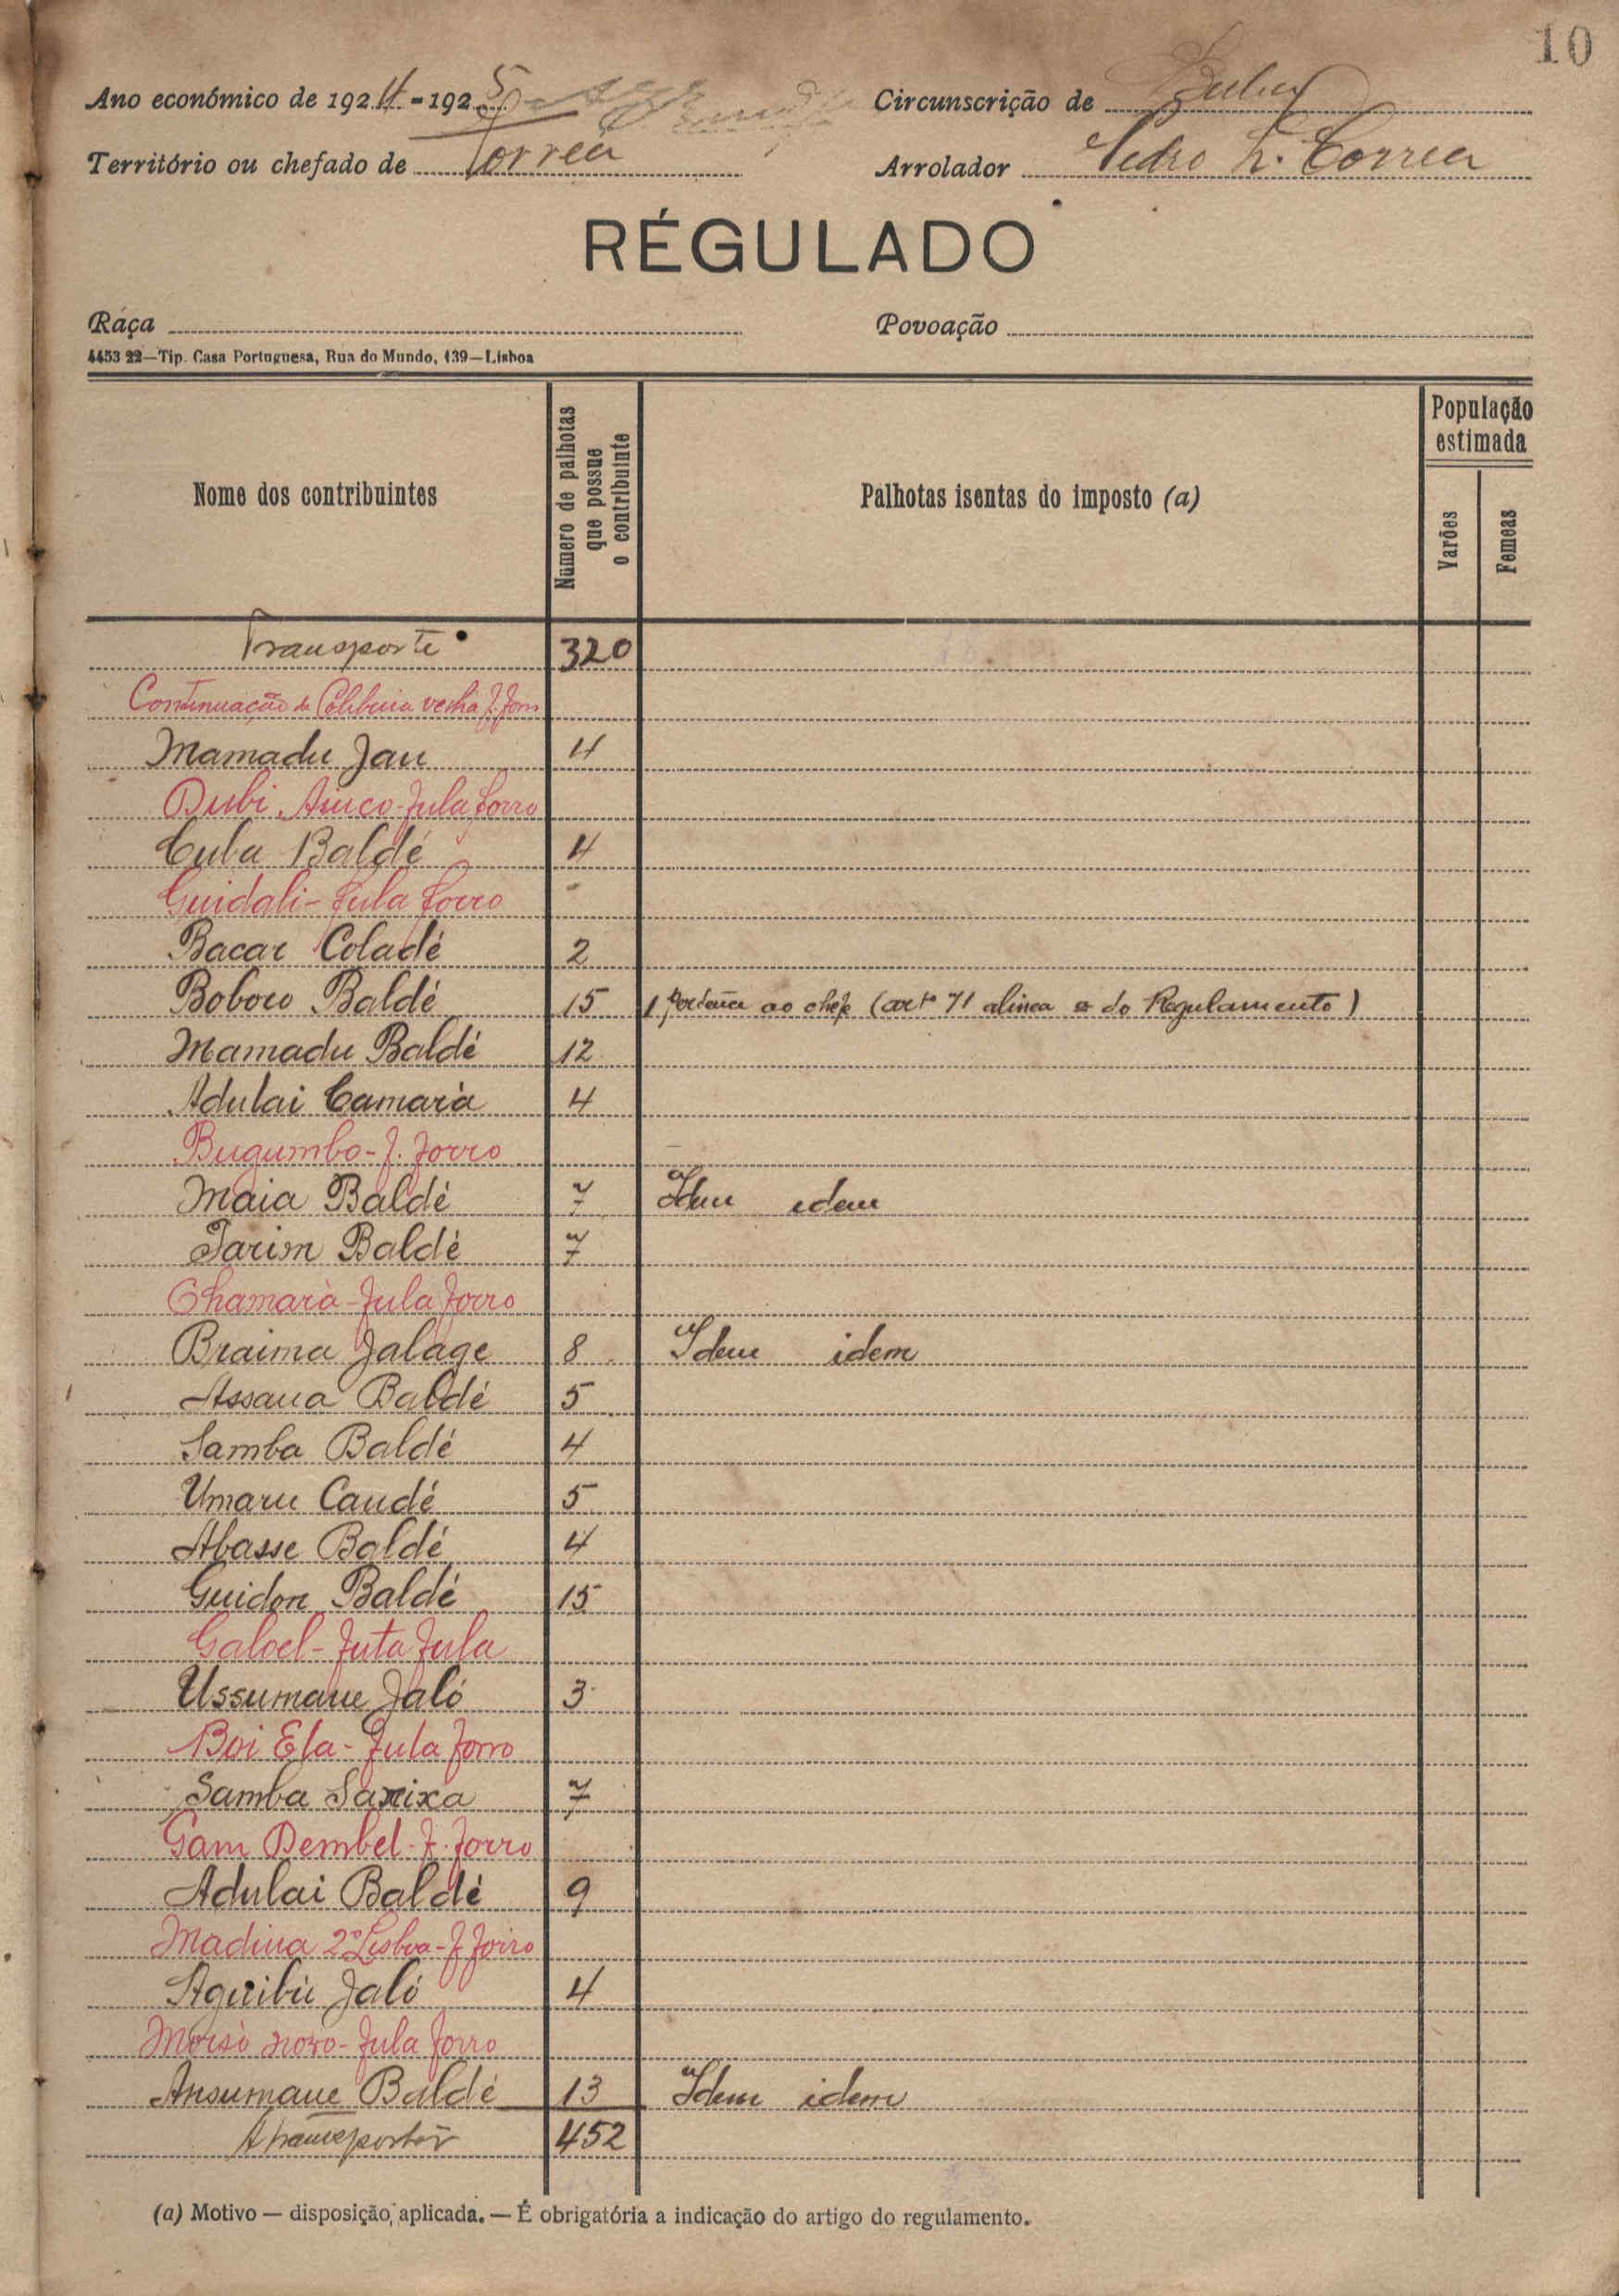 10
Ano económico de 1924-1925
Circunscrição de Buba
Território ou chefado de Correa
Arrolador Pedro L. Correa
RÉGULADO
Raça
Povoação
4453 22—Tip. Casa Portuguesa, Rua do Mundo, 139—Lisboa
Nome dos contribuintes
Número de palhotas que possue o contribuinte
Palhotas isentas do imposto (a)
População estimada
Varões
Femeas
Transporte 320
Continuação de Colibuia velha F. forro
Mamadu Jau 4
Dubi - Fula forro
Cula Baldé 4
Guidali - Fula forro
Bacar Coladé 2
Boboro Baldé 15 1 pertence ao chefe (artº 71 alinea a do Regulamento)
Mamadu Baldé 12
Adulai Camará 4
Bugumbo - F. forro
Maia Baldé 7 Idem idem
Jarim Baldé 7
Chamará - Fula forro
Braima Jalage 8 Idem idem
Assana Baldé 5
Samba Baldé 4
Umaru Candé 5
Abasse Baldé 4
Guidon Baldé 15
Galoel - Futa Fula
Ussumane Jaló 3
Boi Ela - Fula forro
Samba Sanixa 7
Gam Dembel - F. forro
Adulai Baldé 9
Madina 2º Lisboa - F. forro
Aguibú Jaló 4
novo - Fula forro
Ansumane Baldé 13 Idem idem
A transportar 452
(a) Motivo — disposição, aplicada. — É obrigatória a indicação do artigo do regulamento.